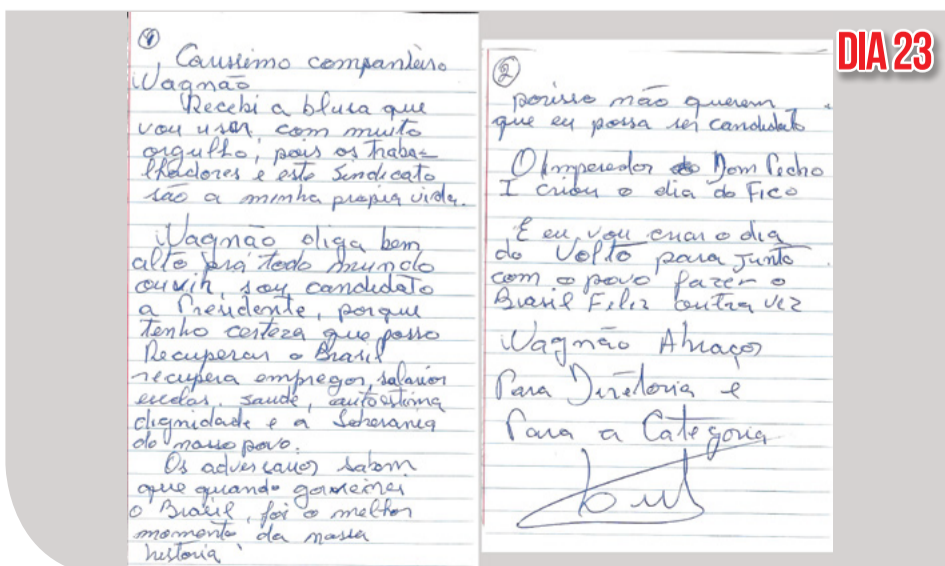 DIA 23
1
Caussimo companheiro
Wagnão
Recebi a blusa que
vou usar com muito
orgulho, pois os traba-
lhadores e este Sindicato
são a minha propia vida.
Wagnão diga bem
alto prá todo mundo
ouvir, sou candidato
a Presidente, porque
tenho certeza que posso
Recuperar o Brasil
recupera empregos, salarios
escolas, saude, autoestima
dignidade e a Soberania
do nosso povo.
Os adversarios sabem
que quando governei
o Brasil, foi o melhor
momento da nossa
historia
2
porisso não querem
que eu possa ser candidato
O Imperador Dom Pedro
I criou o dia do Fico
E eu vou criar o dia
do Volto para junto
com o povo fazer o
Brasil Feliz outra vez
Wagnão Abraços
Para Diretoria e
Para a Categoria